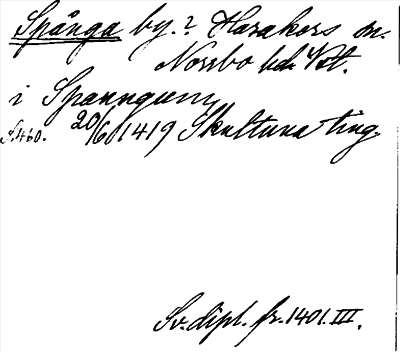 Spånga by.? Harakers sn.
Norrbo hd. Vstl.
i Spanngum
S. 460. 20/6 1419 Skultuna ting
Sv. dipl. fr. 1401. III.